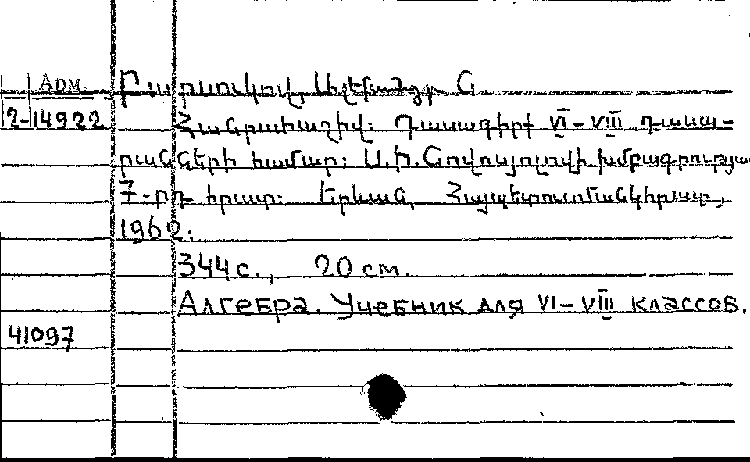 Арм. Բարսուկով, Ալեքսանդր Ն
2-14922 Հանրահաշիվ: Դասագիրք VI–VIII դասա-
րանների համար: Ս.Ի.Նովոսյոլովի խմբագրությա
7-րդ հրատ: Երևան, Հայպետուսմանկհրատ,
1962.
344 с., 20 см.
Алгебра. Учебник для VI–VIII классов.
41097